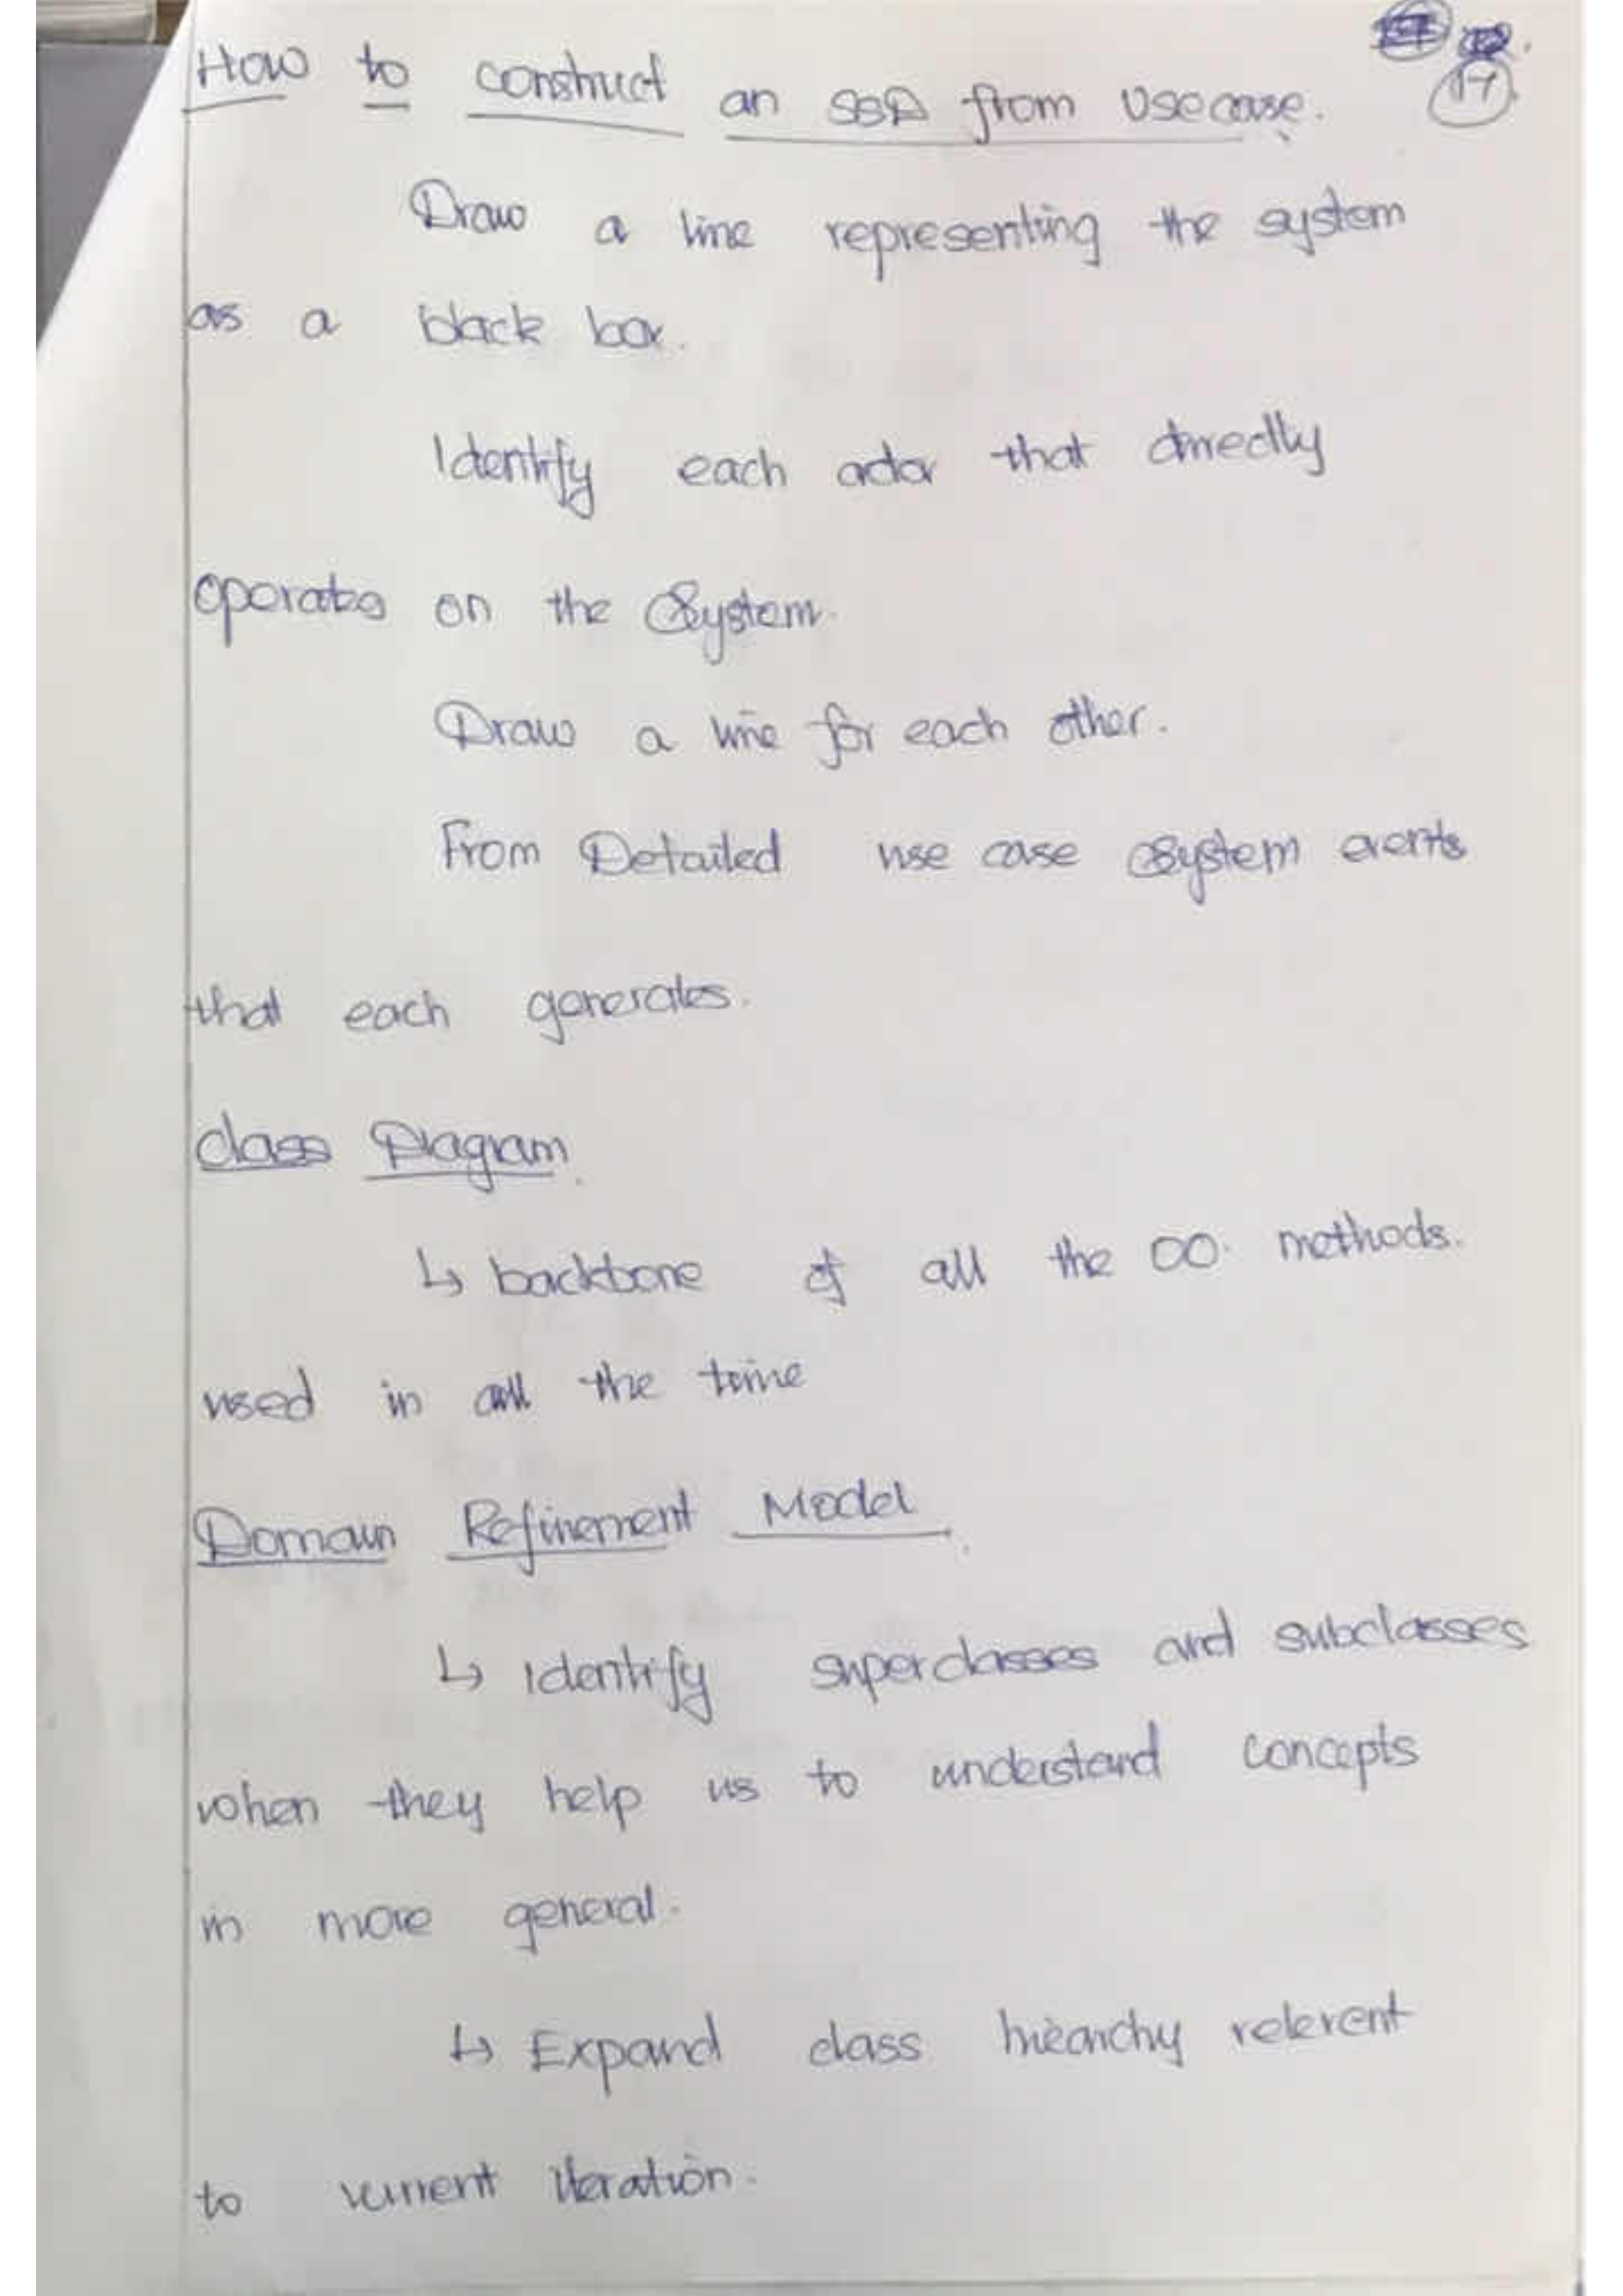 17
How to construct an SSD from Usecase.
Draw a line representing the system
as a black box.
Identify each actor that directly
operates on the System.
Draw a line for each other.
From Detailed use case System events
that each generates.
Class Diagram.
↳ backbone of all the OO methods.
used in all the time
Domain Refinement Model.
↳ identify superclasses and subclasses
when they help us to understand concepts
in more general.
↳ Expand class hierarchy relevent
to current iteration.